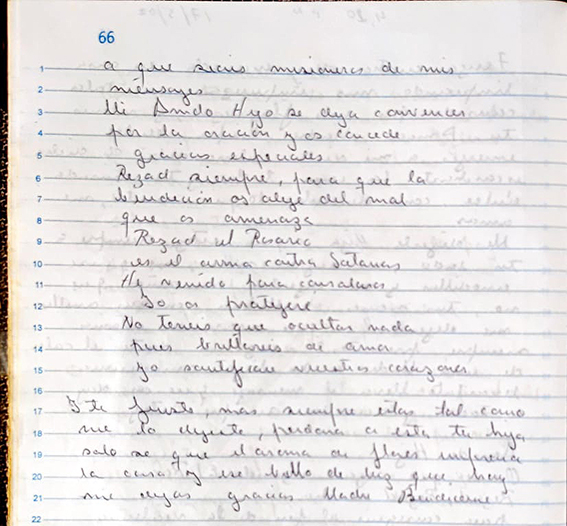 66
1 a que seais misioneros de mis
2 mensajes
3 Mi Amado Hijo se deja convencer
4 por la oración y os concede
5 gracias especiales
6 Rezad siempre, para que la
7 bendición os aleje del mal
8 que os amenaza
9 Rezad el Rosario
10 es el arma contra Satanas
11 He venido para consolaros
12 Yo os protegere
13 No teneis que ocultar nada
14 pues brillareis de amor
15 yo santificare vuestros corazones
16
17 Y te fuiste, mas siempre estas tal como
18 me lo dijiste, perdona a esta tu hija
19 solo se que el aroma de flores impregna
20 la casa y ese bello de luz que hoy
21 me dejas gracias Madre Bendiceme
22